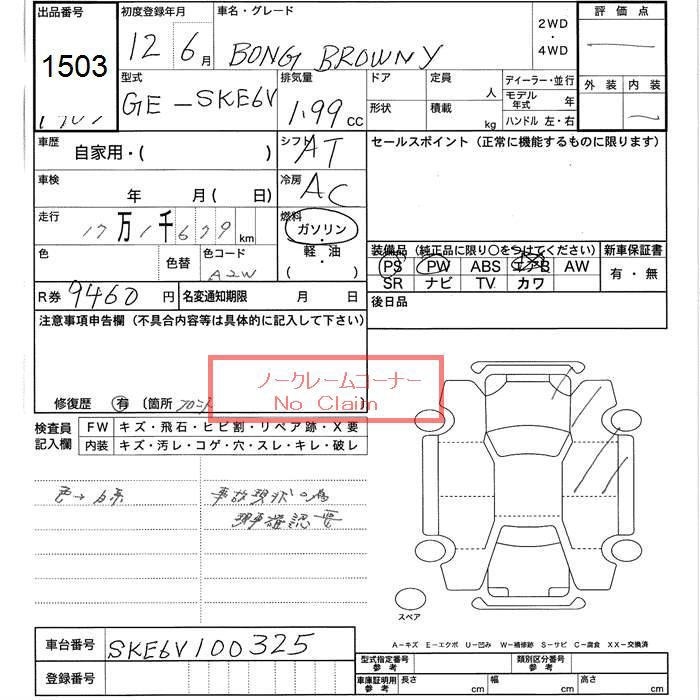 出品番号 初度登録年月 車名・グレード 2WD・4WD 評価点
1503 12 6月 BONG BROWNY
外装 内装
型式 排気量 ドア 定員 人 ディーラー・並行
GE-SKE6V 1.99 CC 形状 積載 kg モデル年式 年
ハンドル 左・右
車歴 自家用・( ) シフト AT セールスポイント (正常に機能するものに限ります)
車検 年 月 ( 日) 冷房 AC
走行 17万1千679km 燃料 ガソリン・軽・油 ( )
色 色替 色コード A2W
装備品 (純正品に限り○をつけてください) 新車保証書
PS PW ABS エアB AW 有・無
SR ナビ TV カワ
R券 9460円 名変通知期限 月 日 後日品
注意事項申告欄 (不具合内容等は具体的に記入して下さい)
ノークレームコーナー
No Claim
修復歴 有 〔箇所 フロント
検査員記入欄 FW キズ・飛石・ヒビ割・リペア跡・X要
内装 キズ・汚レ・コゲ・穴・スレ・キレ・破レ
色→白系 事故現状の為
現車確認要
スペア
A-キズ E-エクボ U-凹み W-補修跡 S-サビ C-腐食 XX-交換済
車台番号 SKE6V100325
登録番号
型式指定番号参考 類別区分番号参考
車庫証明用参考 長さ cm 幅 cm 高さ cm